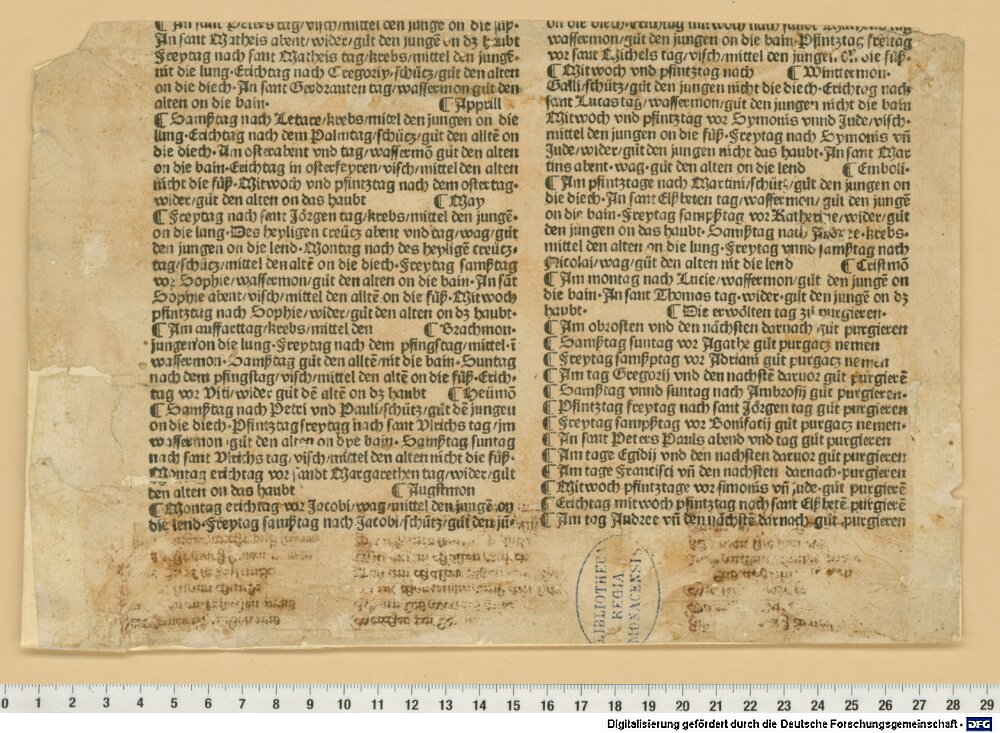 ¶ An sant Peters tag/visch/mittel den junge on die füß·
An sant Matheis abent/wider/gůt den jungē on dz haubt
Freytag nach sant Matheis tag/krebs/mittel den jungē·
nit die lung·Erichtag nach Gregorij·schütz/gůt den alten
on die diech·An sant Gerdrauten tag/wassermon gůt den
alten on die bain· ¶ Apprill
¶ Samßtag nach Letare/krebs/mittel den jungen on die
lung·Erichtag nach dem Palmtag/schütz/gůt den alltē on
die diech·Am osterabent vnd tag/wassermō gůt den alten
on die bain·Erichtag in osterfeyren/visch/mittel den alten
nicht die füß·Mitwoch vnd pfintztag nach dem ostertag·
wider/gůt den alten on das haubt ¶ May
¶ Freytag nach sant Jörgen tag/krebs/mittel den jungē·
on die lung·Des heyligen creütz abent vnd tag/wag/gůt
den jungen on die lend·Montag nach des heyligē creütz·
tag/schütz/mittel den altē on die diech·Freytag samßtag
vor Sophie/wassermon/gůt den alten on die bain·An sāt
Sophie abent/visch/mittel den alltē on die füß·Mitwoch
pfintztag nach Sophie/wider/gůt den alten on dz haubt·
¶ Am auffarttag/krebs/mittel den ¶ Brachmon·
jungen/on die lung·Freytag nach dem pfingstag/mittel·ī
wassermon·Samßtag gůt den alltē/nit die bain·Suntag
nach dem pfingstag/visch/mittel den altē on die füß·Erich·
tag vor Viti/wider gůt dē altē on dz haubt ¶ Heümō
¶ Samßtag nach Petri vnd Pauli/schütz/gůt dē jungen
on die diech·Pfintztag freytag nach sant Vlrichs tag/jm
wassermon·gůt den alten on dye bain·Samßtag suntag
nach sant Vlrichs tag/visch/mittel den alten nicht die füß·
Montag erichtag vor sandt Margarethen tag/wider/gůt
den alten on das haubt ¶ Augstmon
¶ Montag erichtag vor Jacobi/wag/mittel den jungē·on
die lend·Freytag samßtag nach Jacobi/schütz/gůt den jū·
on die diech·Erichtag mitwoch nach sant
wassermon/gůt den jungen on die bain·Pfintztag freitag
vor sant Michels tag/visch/mittel den jungen·on die füß·
¶ Mitwoch vnd pfintztag nach ¶ Wintermon·
Galli/schütz/gůt den jungen nicht die diech·Erichtag nach
sant Lucas tag/wassermon/gůt den jungen nicht die bain
Mitwoch vnd pfintztag vor Symonis vnnd Jude/visch·
mittel den jungen on die füß·Freytag nach Symonis vñ
Jude/wider/gůt den jungen nicht das haubt·An sant Mar
tins abent·wag·gůt den alten on die lend ¶ Emboli·
¶ Am pfintztage nach Martini/schütz/gůt den jungen on
die diech·An sant Elßbeten tag/wassermon/gůt den jungen
on die bain·Freytag sampßtag vor Katherine/wider/gůt
den jungen on das haubt·Samßtag nach Andree·krebs·
mittel den alten on die lung·Freytag vnnd samßtag nach
Nicolai/wag/gůt den alten nit die lend ¶ Cristmō
¶ Am montag nach Lucie/wassermon/gůt den jungē on
die bain·An sant Thomas tag·wider·gůt den jungē on dz
haubt· ¶ Die erwölten tag zů purgieren·
¶ Am obrosten vnd den nächsten darnach gůt purgieren
¶ Samßtag suntag vor Agathe gůt purgacz nemen
¶ Freytag sampßtag vor Adriani gůt purgacz nemen
¶ Am tag Gregorij vnd den nachstē daruor gůt purgierē
¶ Samßtag vnnd suntag nach Ambrosij gůt purgieren·
¶ Pfintztag freytag nach sant Jörgen tag gůt purgieren
¶ Freytag sampßtag vor Bonifacij gůt purgacz nemen·
¶ An sant Peters Pauls abend vnd tag gůt purgieren
¶ Am tage Egidij vnd den nechsten daruor gůt purgieren
¶ Am tage Francisci vñ den nachsten darnach·purgieren
¶ Mitwoch pfintztage vor simonis vñ jude·gůt purgierē
¶ Erichtag mitwoch pfintztag nach sant Elßbetē purgieren
¶ Am tag Andree vñ den nächstē darnach gůt purgieren
BIBLIOTHECA
REGIA
MONACENSIS
0 1 2 3 4 5 6 7 8 9 10 11 12 13 14 15 16 17 18 19 20 21 22 23 24 25 26 27 28 29
Digitalisierung gefördert durch die Deutsche Forschungsgemeinschaft - DFG